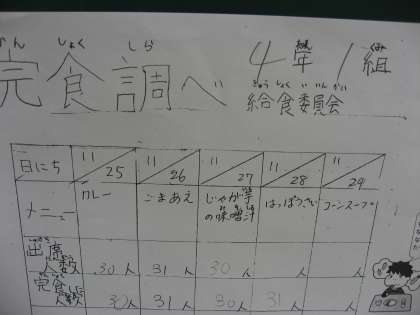 かん しょく しら
完食調べ 4年1組
きゅう しょく い いん かい
給食委員会
日にち 11/25 11/26 11/27 11/28 11/29
メニュー カレー ごまあえ じゃが芋の味噌汁 はっぽうさい コーンスープ
出席人数 30人 31人 30人 人 人
完食人数 30人 31人 30人 31人 人